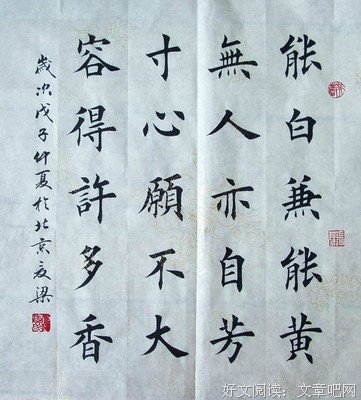 能白兼能黄
無人亦自芳
寸心願不大
容得許多香
歲次戊子仲夏於北京友梁
好文阅读:文章吧网